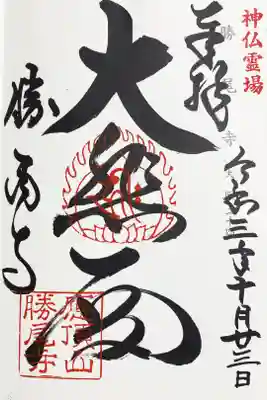 神仏霊場
奉拝
勝尾寺
令和三年十月廿三日
大悲殿
勝尾寺
應頂山
勝尾寺